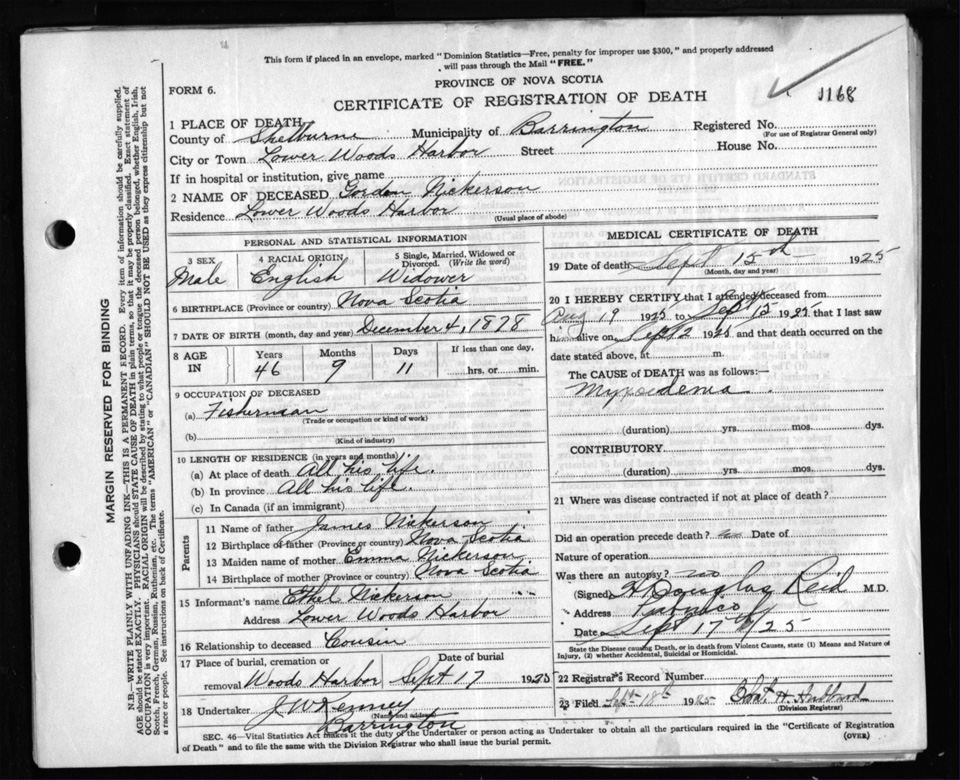 This form if placed in an envelope, marked "Dominion Statistics—Free, penalty for improper use $300," and properly addressed
will pass through the Mail "FREE."
PROVINCE OF NOVA SCOTIA
FORM 6.
CERTIFICATE OF REGISTRATION OF DEATH
1168
1 PLACE OF DEATH
County of Shelburne Municipality of Barrington Registered No.
(For use of Registrar General only)
City or Town Lower Woods Harbor Street House No.
If in hospital or institution, give name
2 NAME OF DECEASED Gordon Nickerson
Residence Lower Woods Harbor
(Usual place of abode)
PERSONAL AND STATISTICAL INFORMATION
3 SEX 4 RACIAL ORIGIN 5 Single, Married, Widowed or Divorced. (Write the word)
Male English Widower
6 BIRTHPLACE (Province or country) Nova Scotia
7 DATE OF BIRTH (month, day and year) December 4, 1878
8 AGE IN Years Months Days If less than one day,
46 9 11 hrs. or min.
9 OCCUPATION OF DECEASED
(a) Fisherman
(Trade or occupation or kind of work)
(b)
(Kind of industry)
10 LENGTH OF RESIDENCE (in years and months)
(a) At place of death All his life.
(b) In province All his life.
(c) In Canada (if an immigrant)
Parents
11 Name of father James Nickerson
12 Birthplace of father (Province or country) Nova Scotia
13 Maiden name of mother Emma Nickerson
14 Birthplace of mother (Province or country) Nova Scotia
15 Informant's name Ethel Nickerson
Address Lower Woods Harbor
16 Relationship to deceased Cousin
17 Place of burial, cremation or removal Woods Harbor Date of burial Sept 17 1925
18 Undertaker J W Kenney
(Name and address)
Barrington
MEDICAL CERTIFICATE OF DEATH
19 Date of death Sept 15th 1925
(Month, day and year)
20 I HEREBY CERTIFY that I attended deceased from
Aug 19 1925 to Sept 15 1925 that I last saw
him alive on Sept 2 1925 and that death occurred on the
date stated above, at m.
The CAUSE of DEATH was as follows:—
Myxoedema
(duration) yrs. mos. dys.
CONTRIBUTORY
(duration) yrs. mos. dys.
21 Where was disease contracted if not at place of death?
Did an operation precede death? no Date of
Nature of operation
Was there an autopsy? no
(Signed) H Douglas Reid M.D.
Address Pubnico
Date Sept 17th/25
State the Disease causing Death, or in death from Violent Causes, state (1) Means and Nature of
Injury, (2) whether Accidental, Suicidal or Homicidal.
22 Registrar's Record Number
23 Filed Sept 18th 1925 H. Hubbard
(Division Registrar)
SEC. 46—Vital Statistics Act makes it the duty of the Undertaker or person acting as Undertaker to obtain all the particulars required in the "Certificate of Registration
of Death" and to file the same with the Division Registrar who shall issue the burial permit. (OVER)
MARGIN RESERVED FOR BINDING
N.B.—WRITE PLAINLY WITH UNFADING INK—THIS IS A PERMANENT RECORD. Every item of information should be carefully supplied.
AGE should be stated EXACTLY. PHYSICIANS should STATE CAUSE OF DEATH in plain terms, so that it may be properly classified. Exact statement of
OCCUPATION is very important. RACIAL ORIGIN will be described by stating to what people or race the deceased person belonged, whether English, Irish,
Scotch, French, German, Russian, Ruthenian, etc. The terms "AMERICAN" or "CANADIAN" SHOULD NOT BE USED as they express citizenship but not
a race or people. See instructions on back of Certificate.